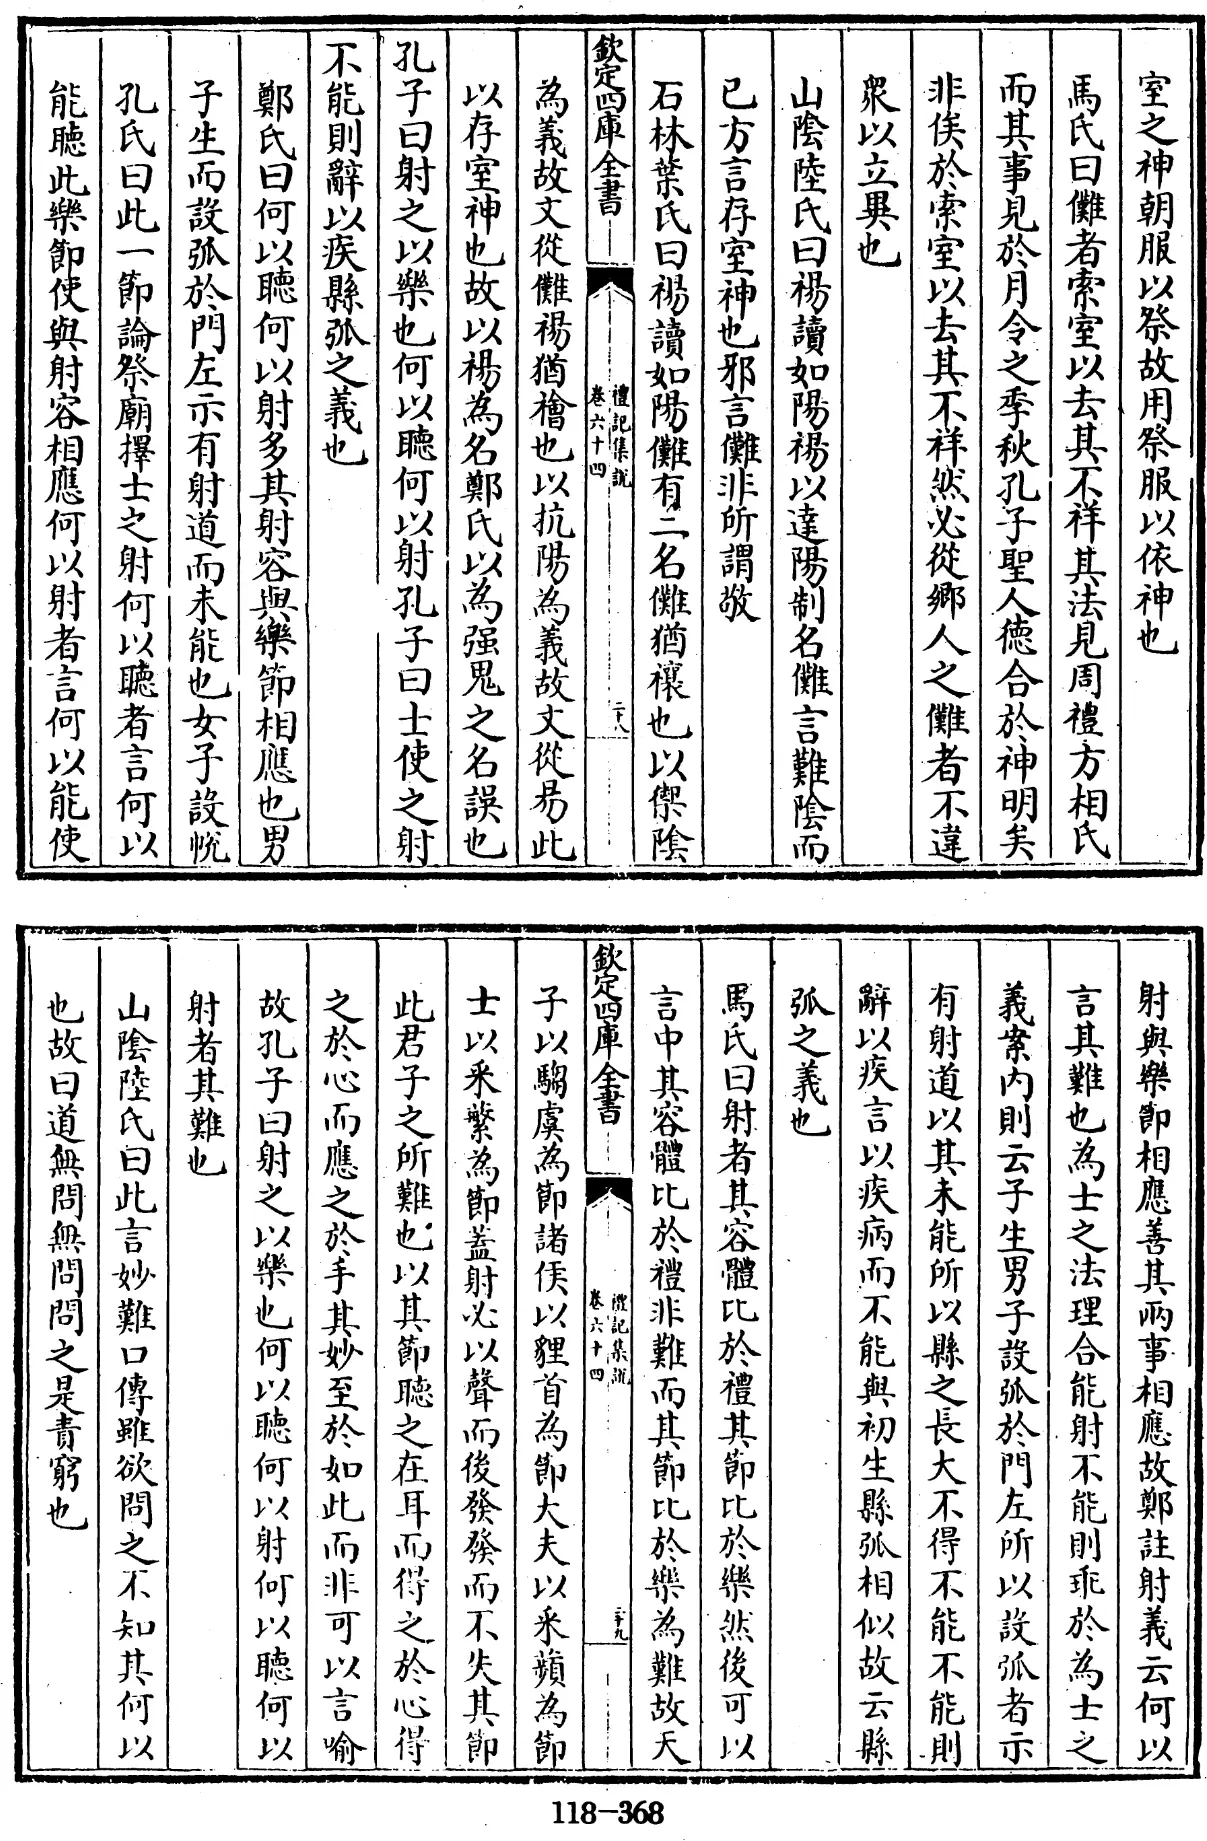 室之神朝服以祭故用祭服以依神也
馬氏曰儺者索室以去其不祥其法見周禮方相氏
而其事見於月令之季秋孔子聖人德合於神明矣
非俟於索室以去其不祥然必從鄉人之儺者不違
衆以立異也
山陰陸氏曰禓讀如陽禓以達陽制名儺言難陰而
已方言存室神也邪言儺非所謂敬
石林葉氏曰禓讀如陽儺有二名儺猶禳也以禦陰
欽定四庫全書
禮記集說
卷六十四
二十八
為義故文從儺禓猶襘也以抗陽為義故文從昜此
以存室神也故以禓為名鄭氏以為强鬼之名誤也
孔子曰射之以樂也何以聽何以射孔子曰士使之射
不能則辭以疾縣弧之義也
鄭氏曰何以聽何以射多其射容與樂節相應也男
子生而設弧於門左示有射道而未能也女子設帨
孔氏曰此一節論祭廟擇士之射何以聽者言何以
能聽此樂節使與射容相應何以射者言何以能使
射與樂節相應善其兩事相應故鄭註射義云何以
言其難也為士之法理合能射不能則乖於為士之
義案內則云子生男子設弧於門左所以設弧者示
有射道以其未能所以縣之長大不得不能不能則
辭以疾言以疾病而不能與初生縣弧相似故云縣
弧之義也
馬氏曰射者其容體比於禮其節比於樂然後可以
言中其容體比於禮非難而其節比於樂為難故天
欽定四庫全書
禮記集說
卷六十四
二十九
子以騶虞為節諸侯以貍首為節大夫以采蘋為節
士以采繁為節蓋射必以聲而後發發而不失其節
此君子之所難也以其節聽之在耳而得之於心得
之於心而應之於手其妙至於如此而非可以言喻
故孔子曰射之以樂也何以聽何以射何以聽何以
射者其難也
山陰陸氏曰此言妙難口傳雖欲問之不知其何以
也故曰道無問無問問之是責窮也
118-368